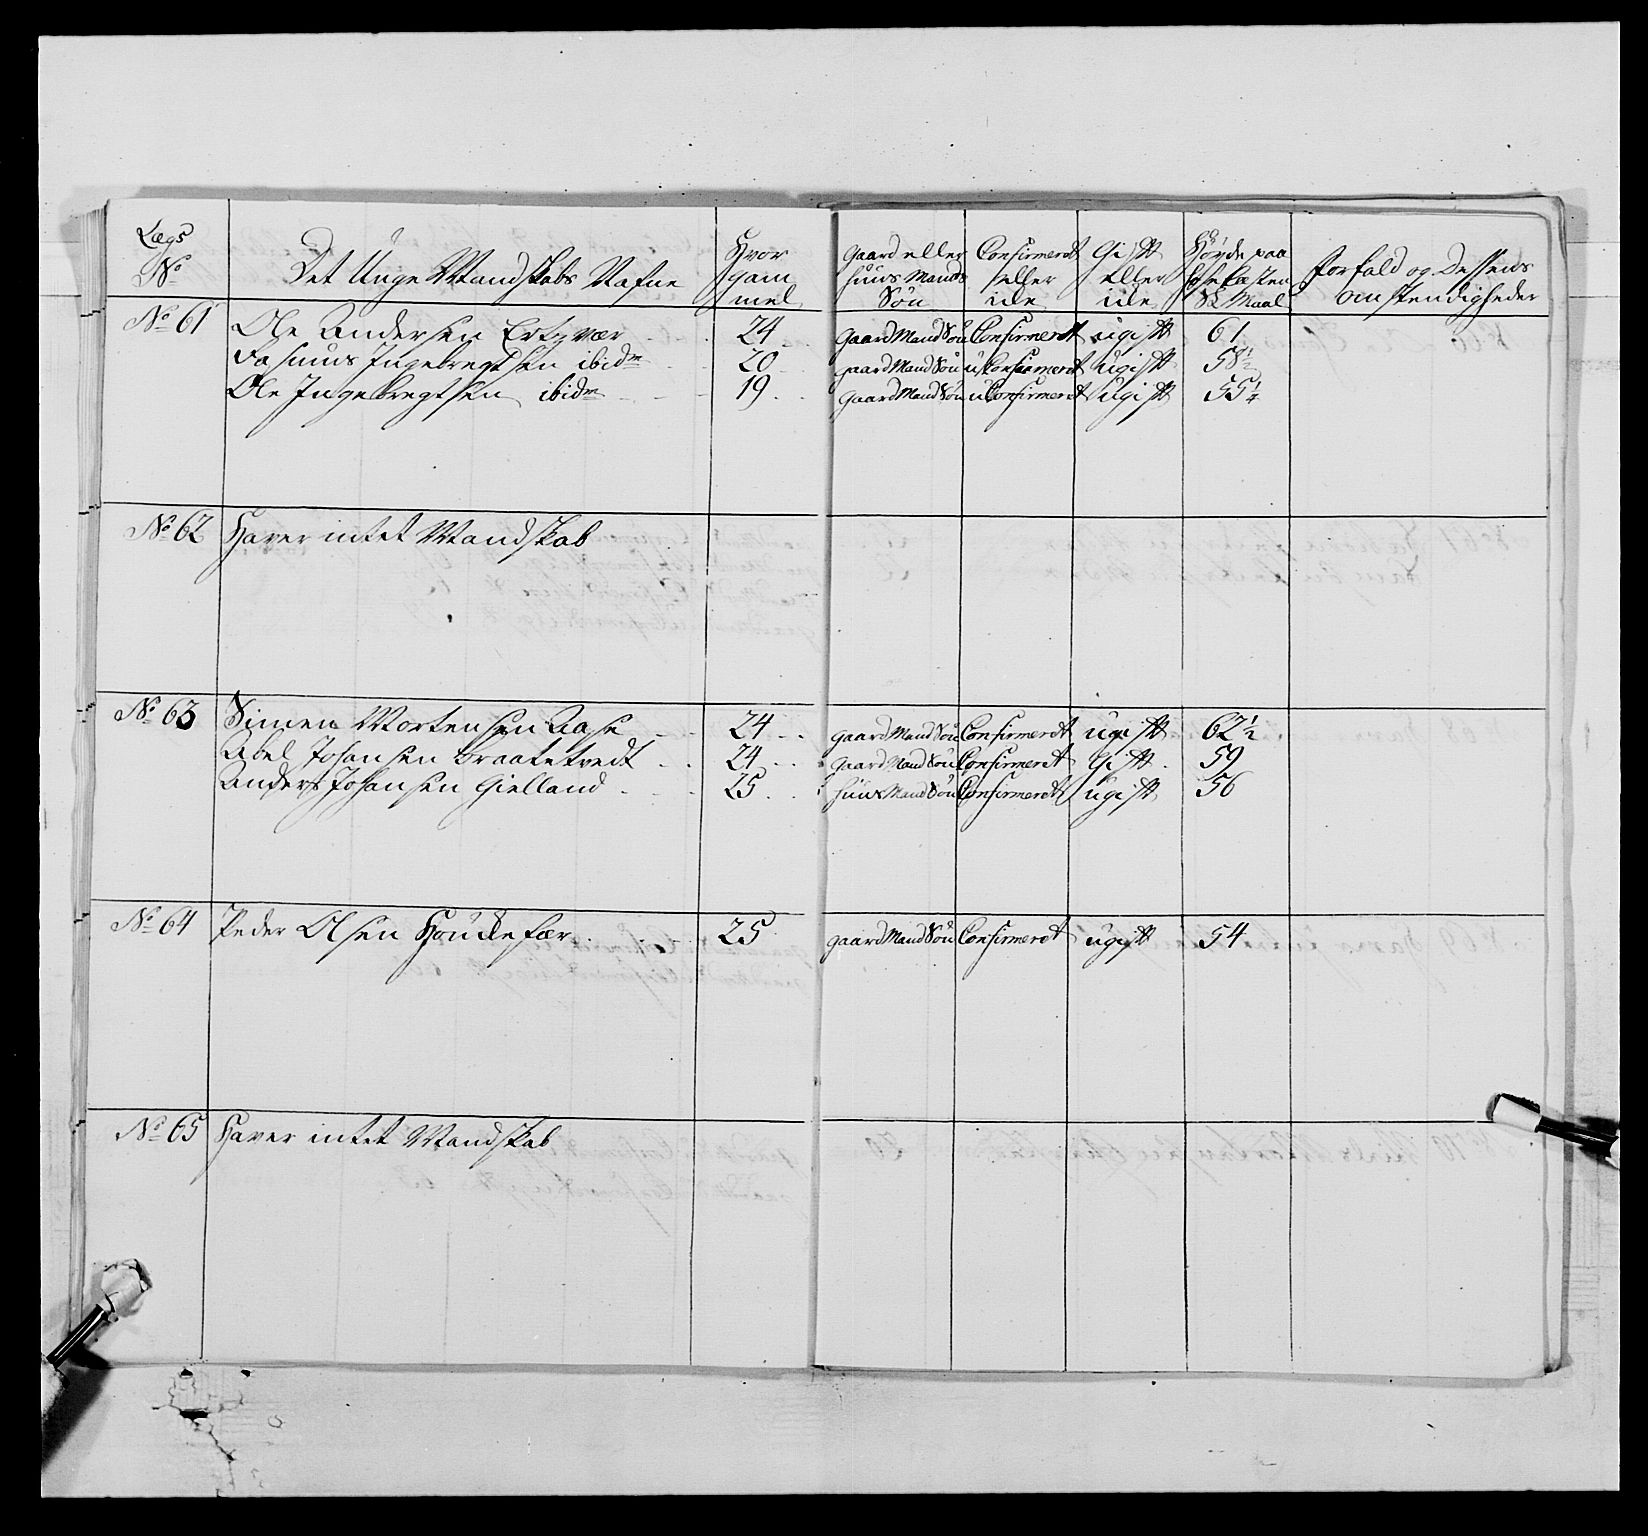 Lægs No
Det Unge Mandskabs Nafne
Hvor gam mel
Gaard eller Huus Mands Søn
Confirmeret eller iche
Gift eller iche
Høyde paa Hosesaaler S: Maal
forfald og Dessens omstendigheder
No 61 Ole Andersen Ertzvær 24 gaard Mand Søn Confirmeret ugift 61
Rasmus Ingebregtsen ibidm 20 gaard Mand Søn uConfirmeret ugift 58½
Ole Ingebregtsen ibidm 19 gaard Mand Søn uConfirmeret ugift 55¼
No 62 Haver intet Mandskab
No 63 Simen Mortensen Aase 24 gaard Mand Søn Confirmeret ugift 62½
Abel Johansen Braatetvedt 24 gaard Mand Søn Confirmeret Gift 59
Anders Johansen Gielland 25 Huus Mand Søn Confirmeret ugift 56
No 64 Peder Olsen 25 gaard Mand Søn Confirmeret ugift 54
No 65 Haver intet Mandskab